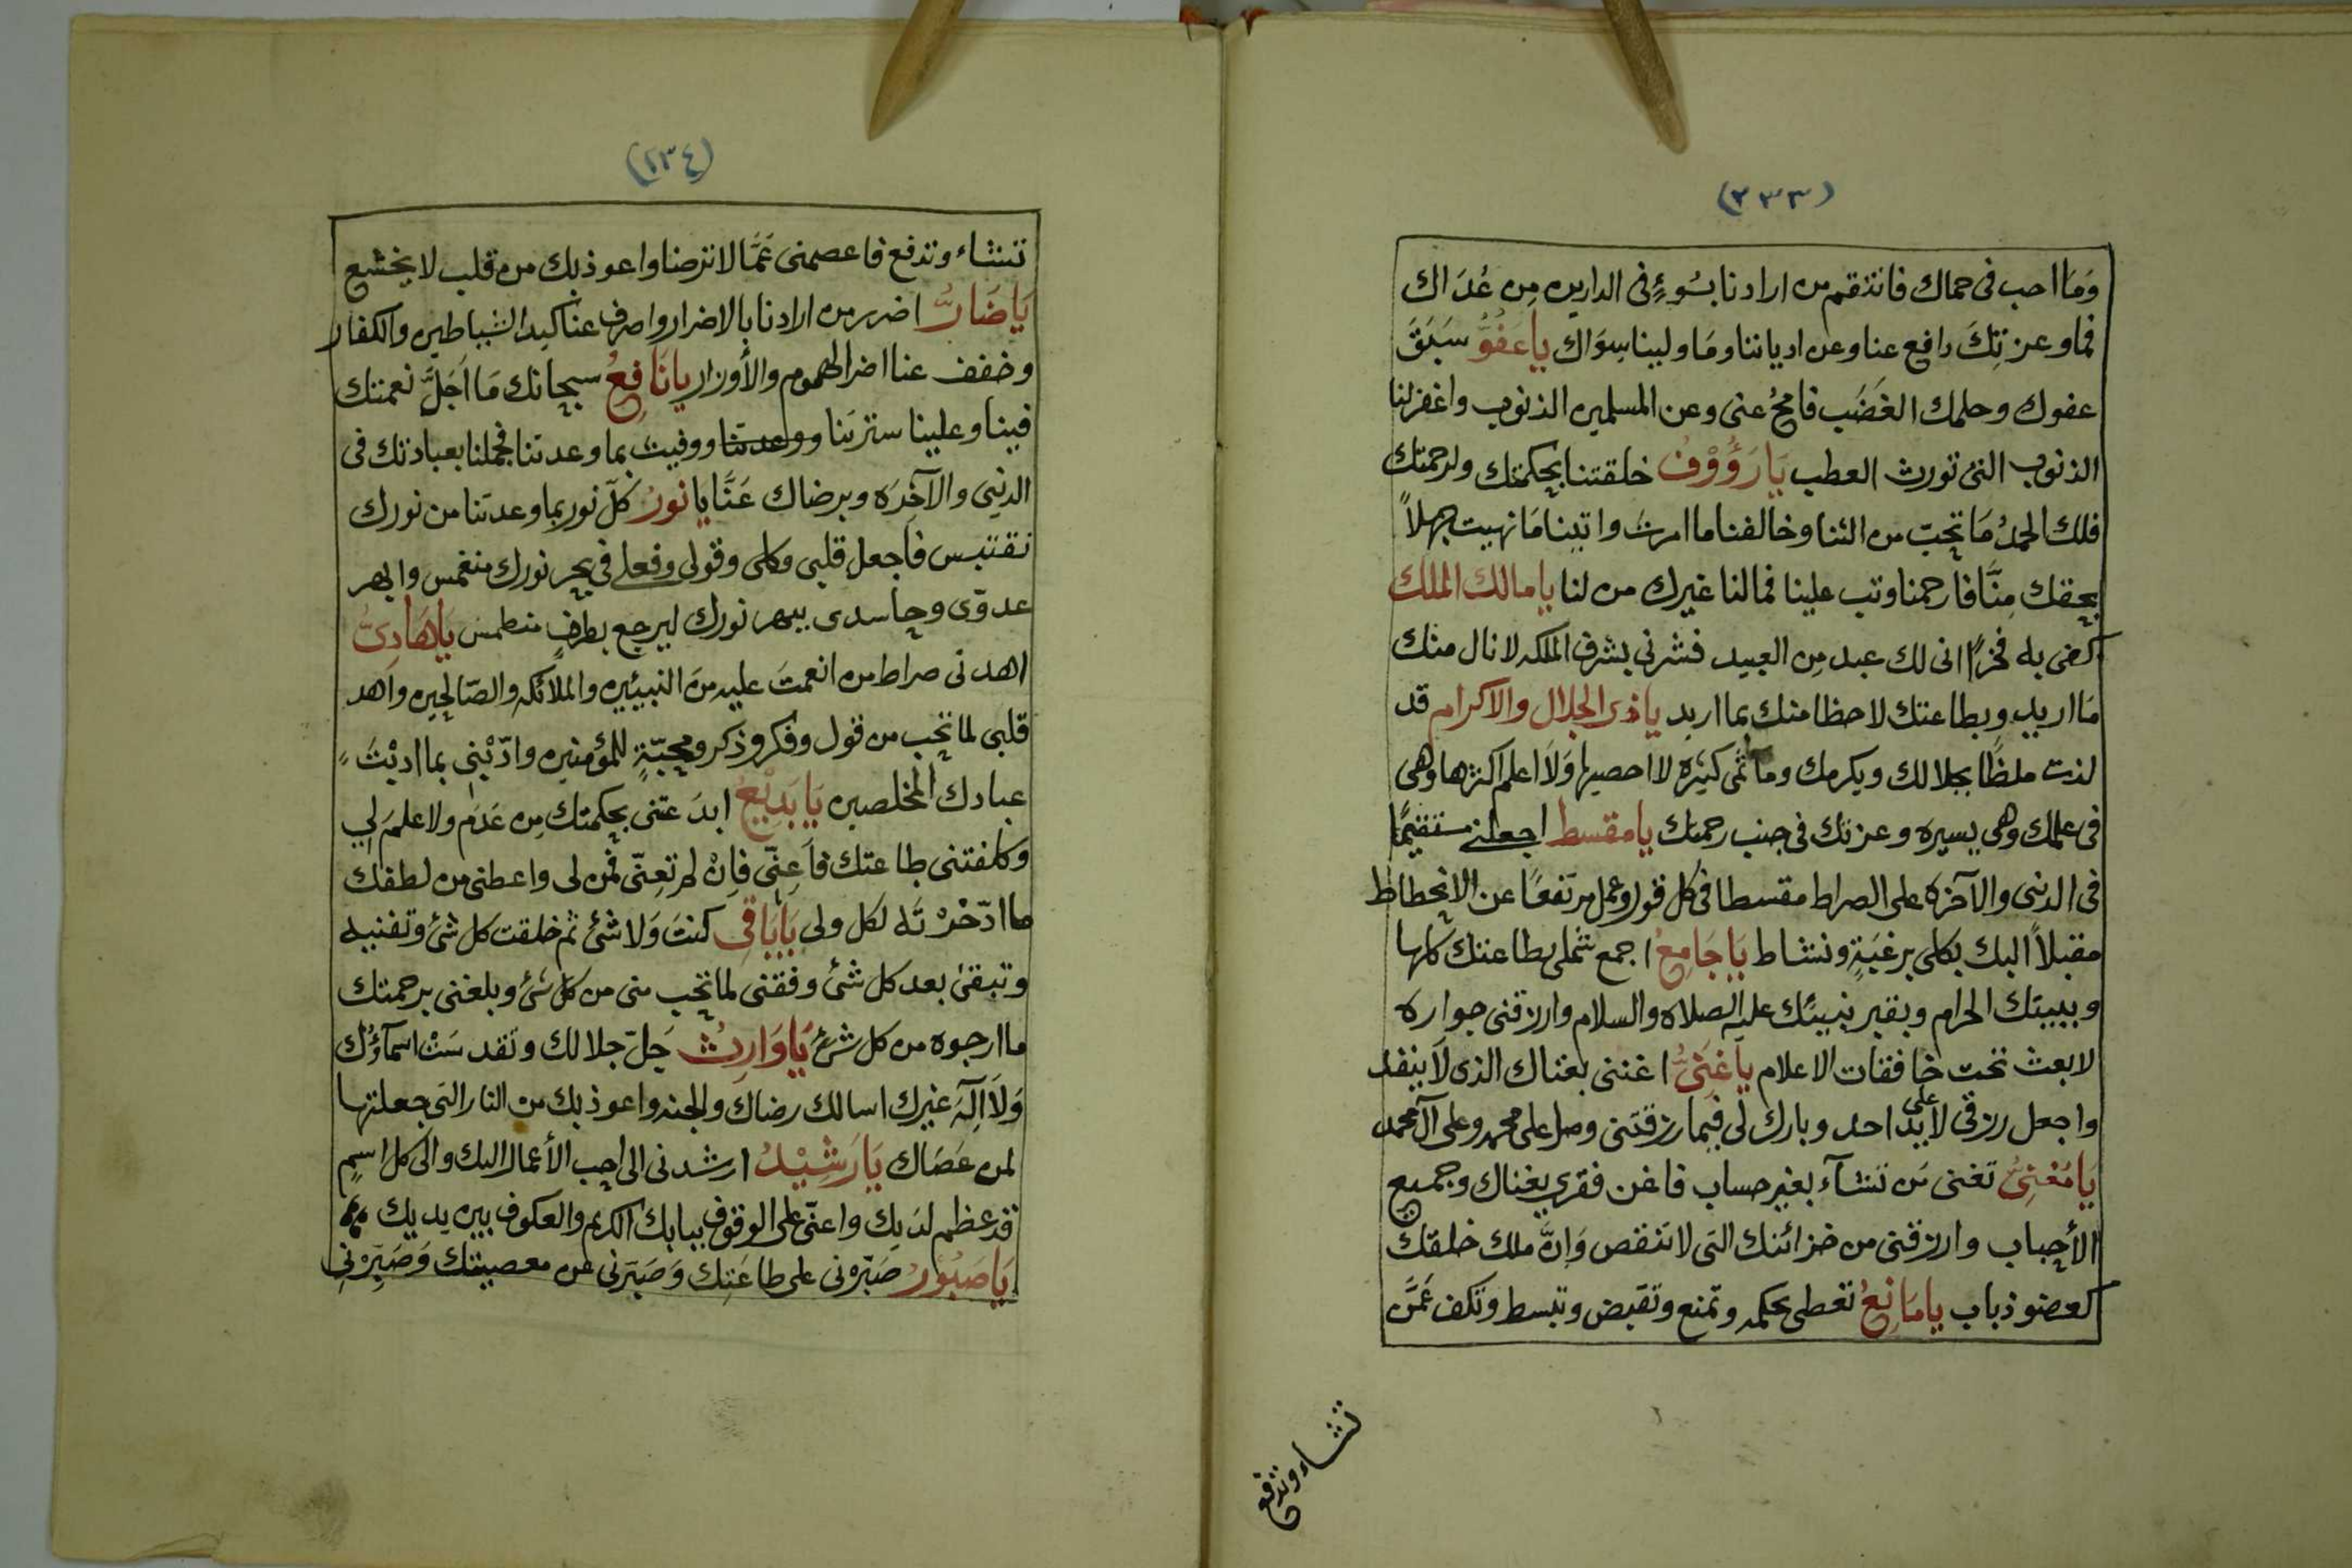 (٢٣٣)
وَمَا احب فى حماك فانتقم من ارادنا بسُوءٍ فى الدارين مِن عُدَاك
فما وعزتِكَ دافع عنا وعن ادياننا ومَا ولينا سِوَاك ياعَفُوُّ سَبَقَ
عفوك وحلمك الغَضَب فامحُ عنى وعن المسلمين الذنوب واغفرلنا
الذنوب التى تورث العطب يَارَؤُوْفُ خلقتنا بحكمتك ولرحمتك
فلك الحمدُ مَا تحبّ من الثنا وخالفنا ما امرتَ واتينا مَا نهيت جهلاً
بحقك مِنَّا فارحمنا وتب علينا فمالنا غيرك من لنا يامالك الملك
كفى به فخرًا انى لك عبد مِن العبيد فشرفنى بشرف الملكه لانال منك
مَا اريد وبطاعتك لاحظا منك بما اريد ياذى الجلال والاكرام قد
لذت ملظًا بجلالك وبكرمك ومأثمى كثيرَه لا احصيها وَلَا اعلم اكثرها وهى
فى علمك وهى يسيره وعزتك فى جنب رحمتك يامقسط اجعلنى مستقيمًا
فى الدنى والآخره على الصراط مقسطا فى كل قول وعمل مرتفعًا عن الانحطاط
مقبلاً اليك بكلى برغبَةٍ ونشاط يَاجَامِعُ اجمع شملى بطاعتك كلها
وببيتك الحرام وبقبر نبيئك عليه الصلاه والسلام وارزقنى جواره
لابعث تحت خافقات الاعلام ياغَنِىُّ اغننى بغناك الذى لَا ينفد
واجعل رزقى لا على يَد احد وبارك لى فيما رزقتنى وصل على محمد وعلى آل محمد
يَا مُغنِىُّ تغنى مَن تشآء بغير حساب فاغن فقري بغناك وجميع
الأحباب وارزقنى من خزائنك التى لا تنقص وَانَّ ملك خلقك
كعضو ذباب يامَانِعُ تعطى بحكمه وتمنع وتقبض وتبسط وتكف عَمَّن
تشاء وتدفع
(٢٣٤)
تشاء وتدفع فاعصمنى عَمَّا لا ترضا واعوذ بك من قلب لا يخشع
يَاضَارُّ اضرر من ارادنا بالاضرار واصرف عنا كيد الشياطين والكفار
وخفف عنا اضرالهموم والأوزار يانَافِعُ سبحانك مَا اَجَلَّ نعمتك
فينا وعلينا سترتنا ووعدتنا ووفيت بما وعدتنا فجملنا بعبادتك فى
الدنيى والآخرَه وبرضاك عَنَّا يَا نورُ كلّ نور بما وعدتَنا من نورك
نقتبس فاجعل قلبى وكلى وقولى وفعلى فى بحر نورك منغمس وابهر
عدوّى وحاسدى ببهر نورك ليرجع بطرفٍ منطمس يَاهَادِىُّ
اهدنى صراط من انعمتَ عليه منَ النبيئين والملائكه والصّالحين واهد
قلبى لما تحب من قول وفكر وذكر ومحبّةٍ للمؤمنين وادّبْنِى بما ادبْتَ
عبادك المخلصين يَا بَدِيْعُ ابدَعتنى بحكمتك مِن عَدَم ولا علمَ لى
وكلفتنى بطاعتك فَاَعِنّى فاِنْ لم تعِنّى فمَن لى واعطنى من لطفك
ما ادّخرْتَه لكل ولى يَابَاقِى كنتَ وَلا شئ ثم خلقت كل شئ وتفنيه
وتبقىٰ بعد كل شئ وفقنى لما تحب منى من كل شئ وبلغنى برحمتك
ما ارجوه من كل شئ يَاوَارِثُ جَلّ جلالك وتقدسَتْ اسمآؤك
وَلَا اِلَهَ غيرك اسالك رضاكَ والجنه واعوذ بك من النار التى جعلتها
لمن عَصَاك يَارَشِيْدُ ارشدنى الى احب الأعمال اليك والى كل اسمٍ
قد عظم لدَيك واعنّى على الوقوف ببابك الكريم والعكوف بين يديك
يَاصَبُوْرُ صَبّرْنى على طاعَتِك وَصَبّرنى عن معصيتك وَصَبِّرْنِى